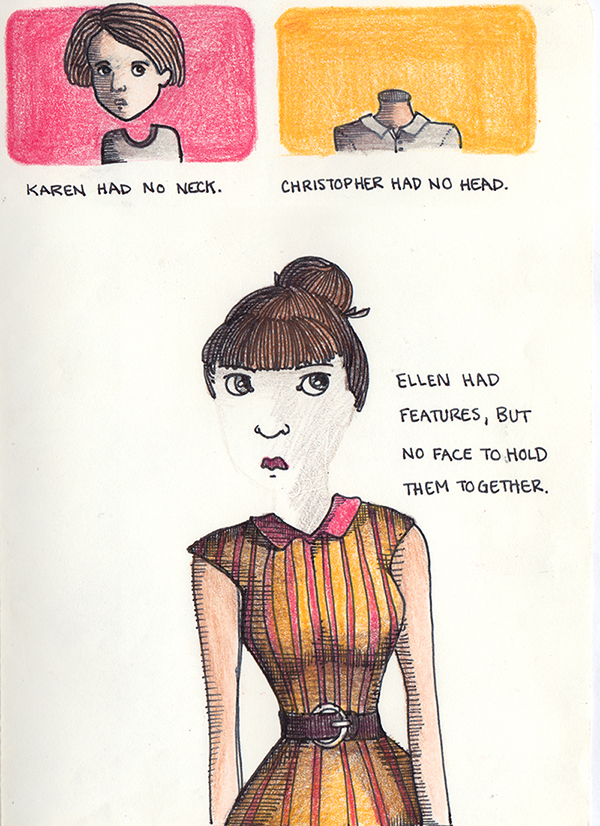 KAREN HAD NO NECK.
CHRISTOPHER HAD NO HEAD.
ELLEN HAD
FEATURES, BUT
NO FACE TO HOLD
THEM TOGETHER.